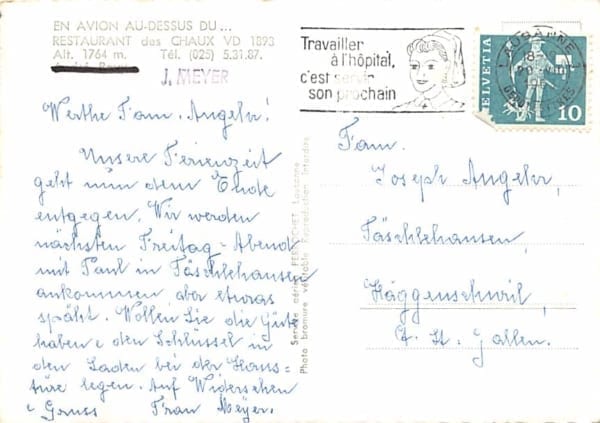 EN AVION AU-DESSUS DU ...
RESTAURANT des CHAUX VD 1893
Alt. 1764 m. Tél. (025) 5.31.87.
J. MEYER
Werthe Fam. Angehr!
Unsere Ferienzeit
geht nun dem Ende
entgegen. Wir werden
nächsten Freitag-Abend
mit Paul in Täschlehausen
ankommen, aber etwas
späht. Wollen Sie die Güte
haben e den Schlüssel in
den Laden bei der Haus-
türe legen. Auf Widersehen
e Gruss Frau Meyer.
Service aérien PERROCHET Lausanne
Photo bromure véritable Reproduction interdite
Travailler
à l'hôpital,
c'est servir
son prochain
LAUSANNE 1
HELVETIA
10
Fam.
Joseph Angehr,
Täschlehausen,
Häggenschwil,
Kt. St. Gallen.